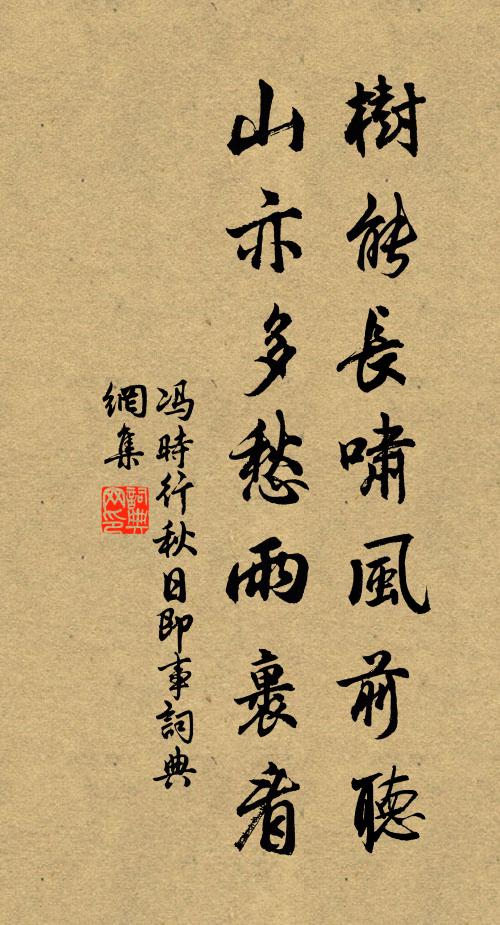 樹能長嘯風前聽
山亦多愁雨裏看
冯時行秋日即事詞典
網集
詞典网印